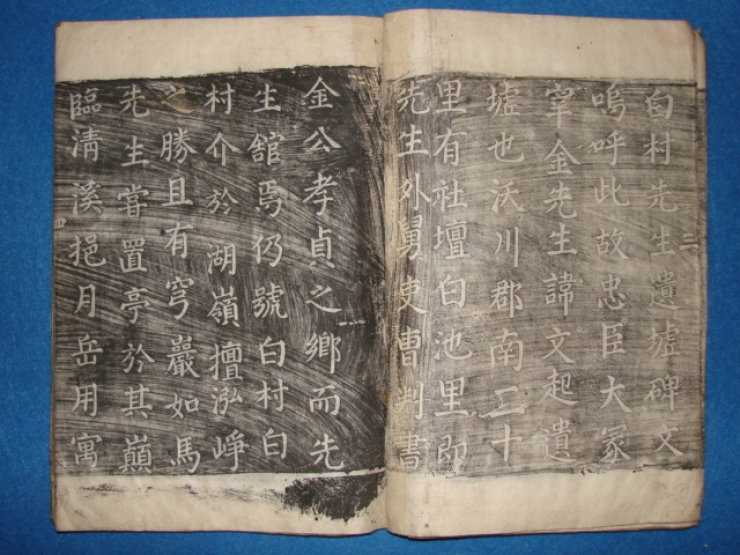 白村先生遺墟碑文
嗚呼此故忠臣大冢
宰金先生諱文起遺
墟也沃川郡南二十
里有社壇白池里即
先生外舅吏曹判書
金公孝貞之鄉而先
生舘焉仍號白村白
村介於湖嶺擅泓崢
之勝且有穹巖如馬
先生嘗置亭於其巔
臨清溪挹月岳用寓